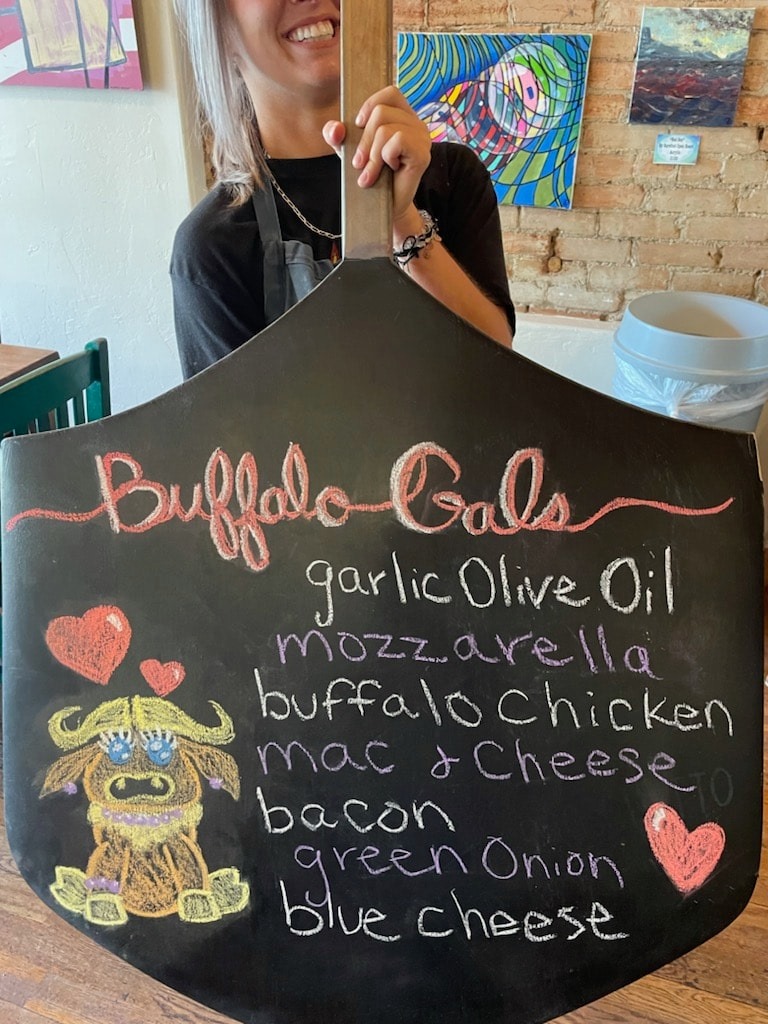 Buffalo Gals
garlic Olive Oil
mozzarella
buffalo chicken
mac & cheese
bacon
green Onion
blue cheese